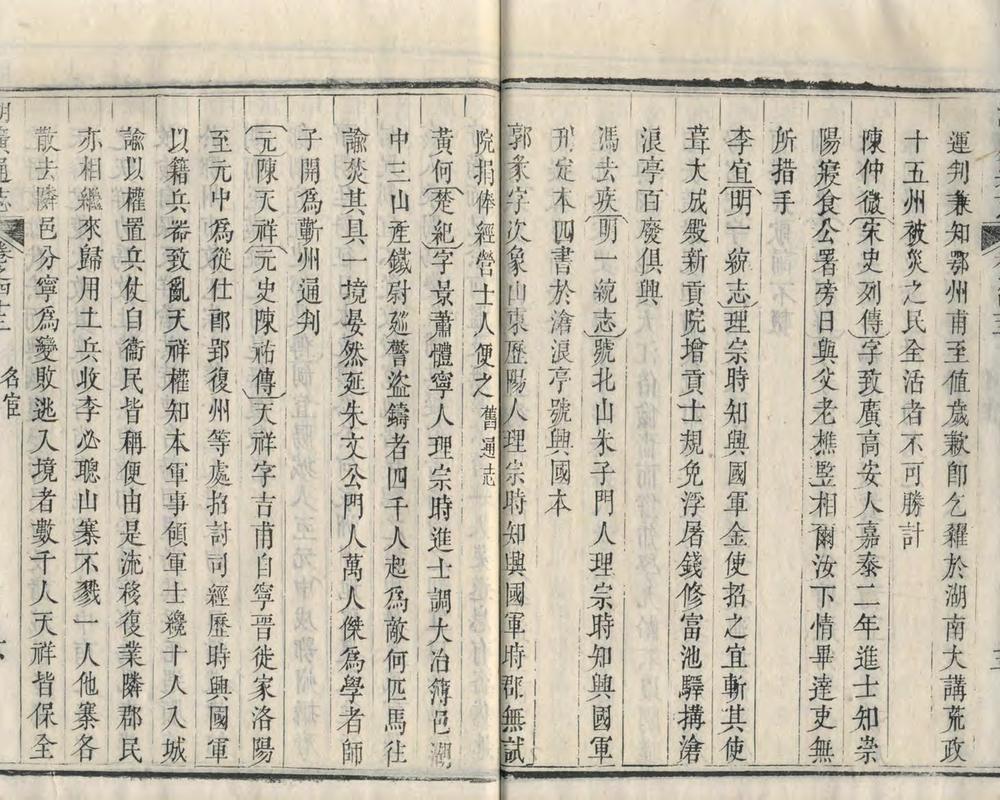 運判兼知鄂州南至值歲歉卽乞糴於湖南大講荒政
十五州被災之民全活者不可勝計
陳仲微宋史列傳字致廣高安人嘉泰二年進士知崇
陽寢食公署旁日與父老樵豎相爾汝下情畢達吏無
所措手
李宜明一統志理宗時知興國軍金使招之宜斬其使
葺大成殿新貢院增貢士規免浮屠錢修富池驛搆滄
浪亭百廢俱興
馮去疾明一統志號北山朱子門人理宗時知興國軍
刑定本四書於滄浪亭號興國本
郭彖字次象山東歷陽人理宗時知興國軍時郡無試
院捐俸經營士人便之舊通志
黃何楚紀字景蕭體寧人理宗時進士調大冶簿邑湖
中三山產鐵尉廵警盜鑄者四千人起爲敵何匹馬往
諭焚其具一境晏然延朱文公門人萬人傑爲學者師
子開爲蘄州通判
元陳天祥元史陳祐傳天祥字吉甫自寧晉徙家洛陽
至元中爲從仕郞郢復州等處招討司經歷時興國軍
以籍兵器致亂天祥權知本軍事領軍士纔十人入城
諭以權置兵仗自衞民皆稱便由是流移復業隣郡民
亦相繼來歸用土兵收李必聰山寨不戮一人他寨各
散去隣邑分寧爲變敗逃入境者數千人天祥皆保全
湖廣通志 卷之四十三 名宦